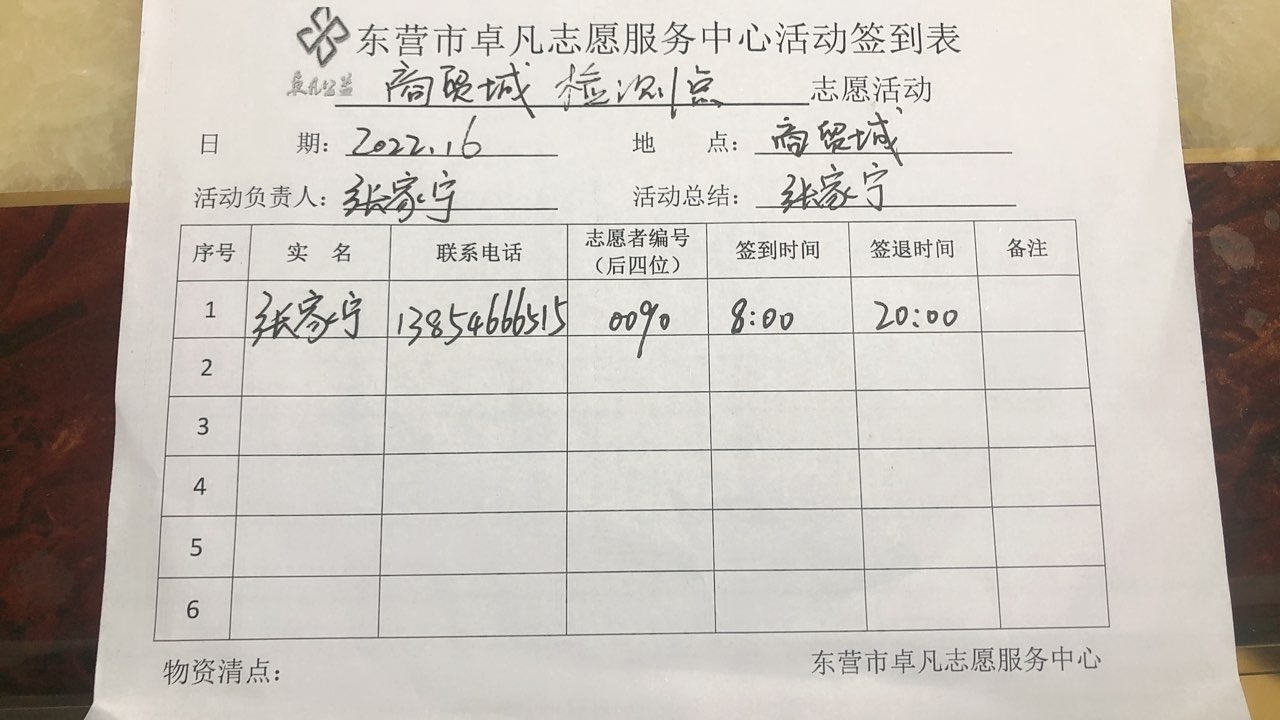 东营市卓凡志愿服务中心活动签到表
卓凡公益 商贸城 检测点 志愿活动
日 期: 2022.16 地 点: 商贸城
活动负责人: 张家宁 活动总结: 张家宁
序号 实 名 联系电话 志愿者编号（后四位） 签到时间 签退时间 备注
1 张家宁 13854666515 0090 8:00 20:00
2
3
4
5
6
物资清点: 东营市卓凡志愿服务中心